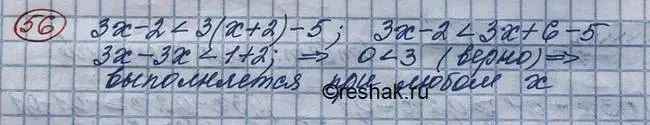 56 3x-2<3(x+2)-5; 3x-2<3x+6-5
3x-3x<1+2; ⇒ 0<3 (верно)⇒
выполняется при любом x
©reshak.ru